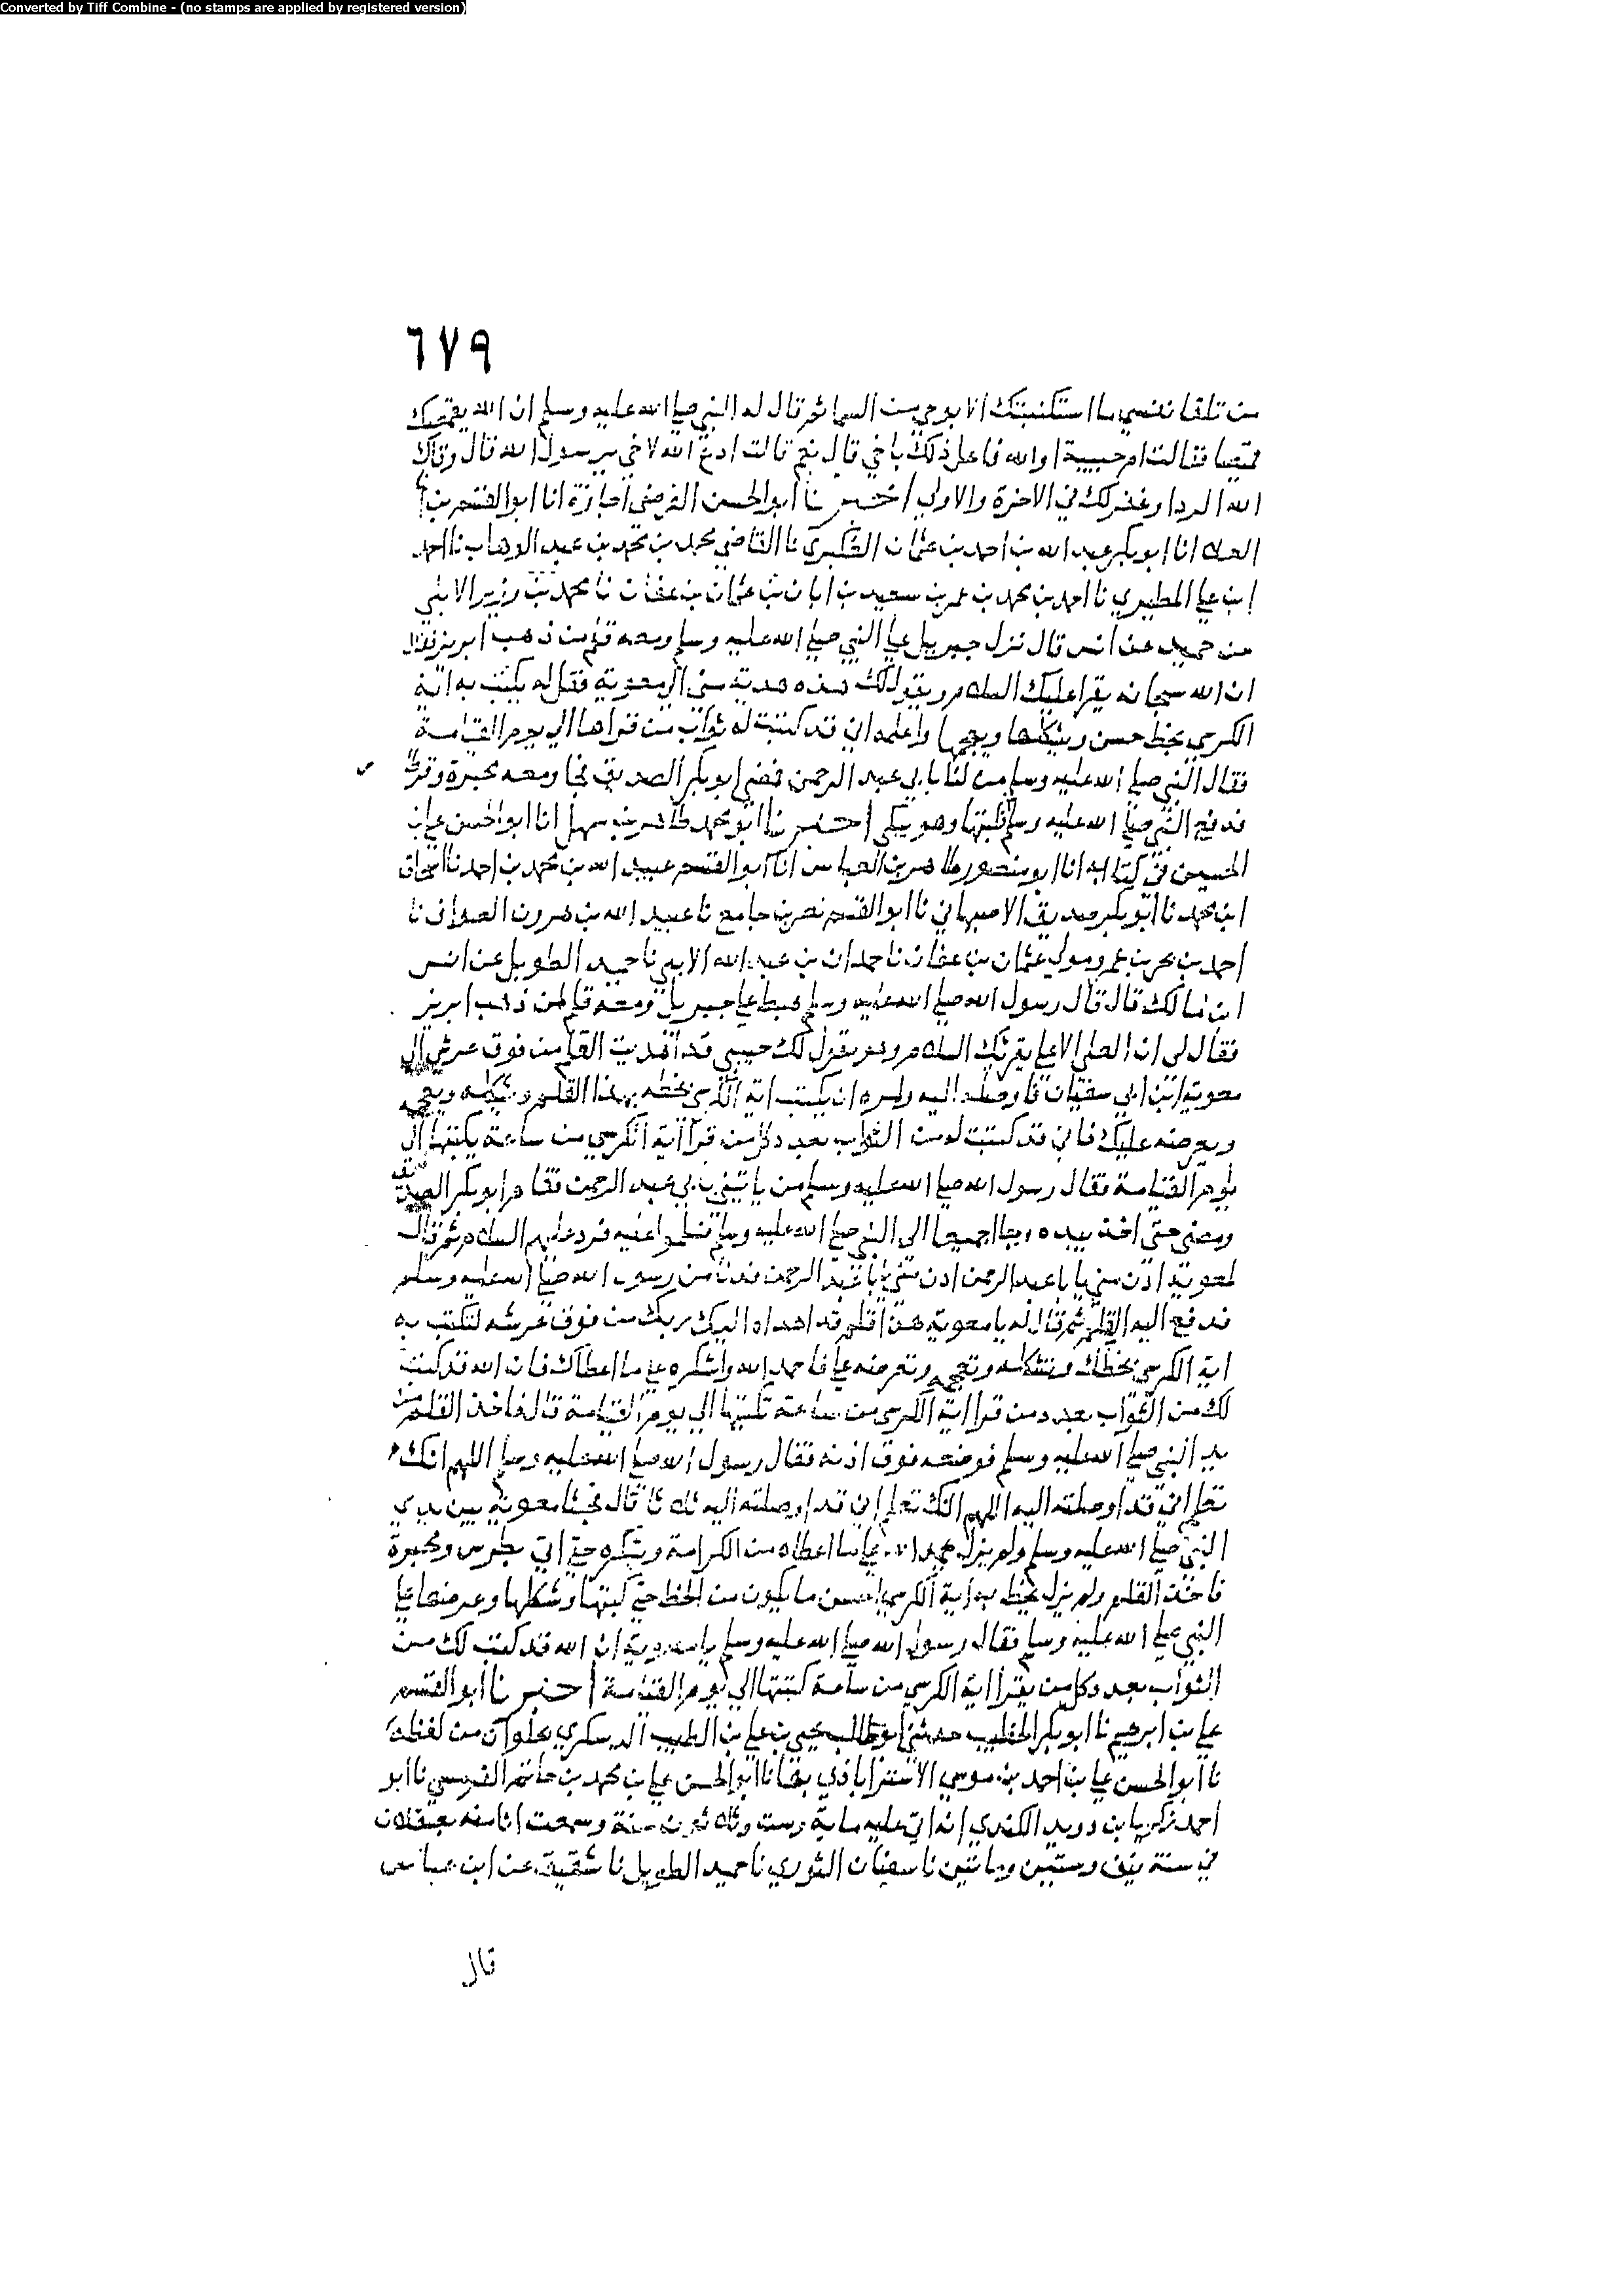 Converted by Tiff Combine - (no stamps are applied by registered version)
٦٧٩
من تلقا نفسي ما استكتبتك الا بوحي من السما ثم قال له النبي صلى الله عليه وسلم ان الله يقمصك
قميصا فقالت ام حبيبة اوالله فاعل ذلك باخي قال نعم قالت ادع الله لاخي يرسول الله قال وقاك
الله الردا وغفر لك في الاخرة والاولي اخبرنا ابو الحسن الفرضي اجازة انا ابو القسم بن
العلا انا ابو بكر عبد الله بن احمد بن عثمان العكبري نا القاضي محمد بن محمد بن عبد الوهاب نا احمد
ابن علي المطيري نا احمد بن محمد بن عمر بن سعيد بن ابان بن عثمان بن عفان نا محمد بن وزير الابلي
عن حميد عن انس قال نزل جبريل علي النبي صلى الله عليه وسلم ومعه قلم من ذهب ابريز فقال
ان الله سبحانه يقرا عليك السلام ويقول لك هذه هدية مني الي معوية فقل له يكتب به اية
الكرسي بخط حسن ويشكلها ويعجمها واعلمه اني قد كتبت له ثواب من قراها الي يوم القيامة
فقال النبي صلى الله عليه وسلم من لنا بابي عبد الرحمن فمضى ابو بكر الصديق فجا ومعه محبرة
فدفع النبي صلى الله عليه وسلم فكتبها وهو يبكي اخبرنا ابو محمد طاهر بن سهل انا ابو الحسن علي بن
الحسين في كتابه انا ابو منصور طاهر بن العباس انا ابو القسم عبيد الله بن محمد بن احمد نا اسحاق
ابن محمد نا ابو بكر صديق الاصبهاني نا ابو القسم نصر بن جامع نا عبيد الله بن هرون الصواف نا
احمد بن بحر بن عمرو مولي عثمان بن عفان نا حمدان بن عبد الله الابلي نا حميد الطويل عن انس
ابن مالك قال قال رسول الله صلى الله عليه وسلم هبط علي جبريل ومعه قلم من ذهب ابريز
فقال لي ان العلي الاعلي يقرئك السلام وهو يقول لك حبيبي قد اهديت القلم من فوق عرشي الي
معوية ابن ابي سفيان فاوصله اليه ومره ان يكتب اية الكرسي بخطه بهذا القلم ويشكله ويعجمه
ويعرضه عليك فاني قد كتبت له من الثواب بعدد كل من قرا اية الكرسي من ساعة يكتبها الي
يوم القيامة فقال رسول الله صلى الله عليه وسلم من ياتيني بابي عبد الرحمن فقام ابو بكر الصديق
ومضى حتى اخذ بيده وجاا جميعا الي النبي صلى الله عليه وسلم فسلموا عليه فرد عليهم السلام ثم قال
لمعوية ادن مني يا با عبد الرحمن ادن مني يا با عبد الرحمن فدنا من رسول الله صلى الله عليه وسلم
فدفع اليه القلم ثم قال له يا معوية هذا قلم قد اهداه اليك ربك من فوق عرشه لتكتب به
اية الكرسي بخطك وتشكله وتعجمه وتعرضه علي فاحمد الله واشكره علي ما اعطاك فان الله قد كتب
لك من الثواب بعدد من قرا اية الكرسي من ساعة تكتبها الي يوم القيامة قال فاخذ القلم من
يد النبي صلى الله عليه وسلم فوضعه فوق اذنه فقال رسول الله صلى الله عليه وسلم اللهم انك
تعلم اني قد اوصلته اليه اللهم انك تعلم اني قد اوصلته اليه ثلاثا قال فجثا معوية بين يدي
النبي صلى الله عليه وسلم ولم يزل يحمد الله علي ما اعطاه من الكرامة ويشكره حتي اتي بطرس ومحبرة
فاخذ القلم ولم يزل يخط به اية الكرسي احسن ما يكون من الخط حتي كتبها وشكلها وعرضها علي
النبي صلى الله عليه وسلم فقال رسول الله صلى الله عليه وسلم يا معوية ان الله قد كتب لك من
الثواب بعدد كل من يقرا اية الكرسي من ساعة كتبتها الي يوم القيامة اخبرنا ابو القسم
علي بن ابرهيم نا ابو بكر الخطيب حدثني ابو طالب يحيى بن علي بن الطيب الدسكري بحلوان من لفظه
نا ابو الحسن علي بن احمد بن موسي الاستراباذي بها نا ابو الحسن علي بن محمد بن حاتم القومسي نا ابو
احمد زكريا بن دويد الكندي انه اتى عليه ماية وست وثلاثون سنة وسمعت انا منه بعسقلان
في سنة نيف وستين ومائتين نا سفيان الثوري نا حميد الطويل نا شقيق عن ابن عباس
قال